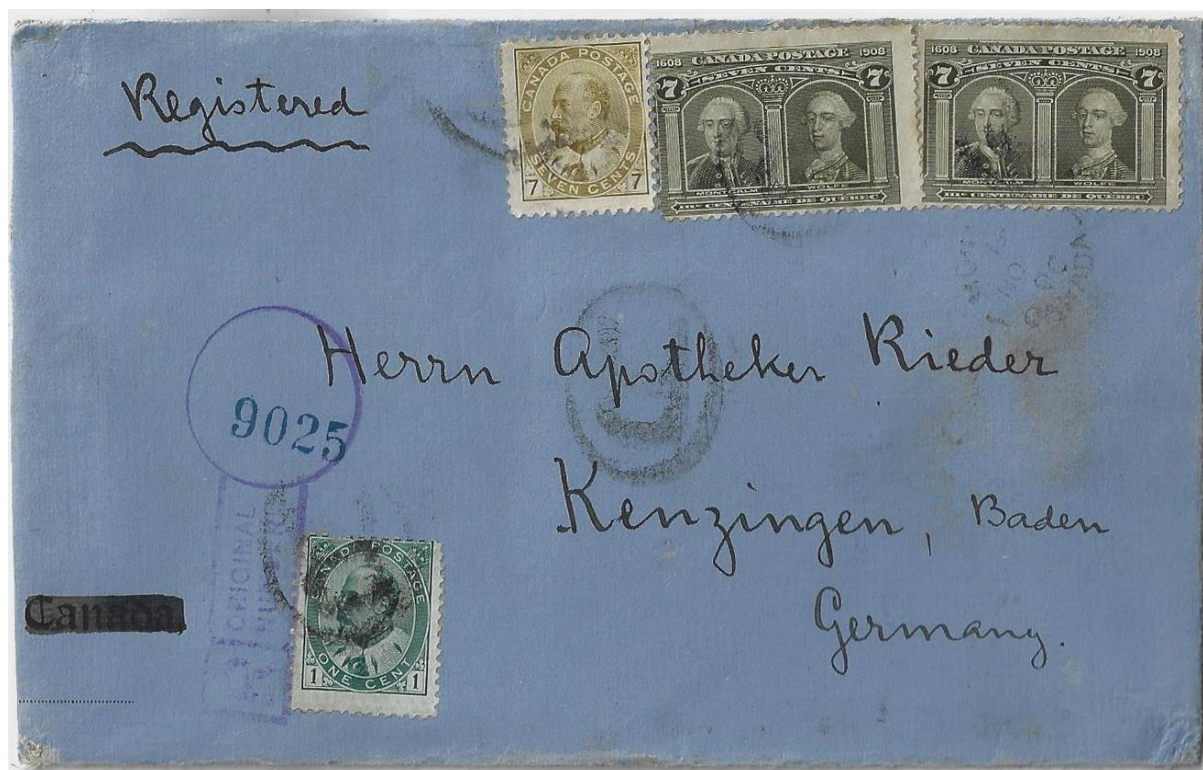 Registered
CANADA POSTAGE
SEVEN CENTS
7 7
1608 CANADA POSTAGE 1908
7 SEVEN CENTS 7
MONTCALM WOLFE
IIIe CENTENAIRE DE QUÉBEC
1608 CANADA POSTAGE 1908
7 SEVEN CENTS 7
MONTCALM WOLFE
IIIe CENTENAIRE DE QUÉBEC
Herrn Apotheker Rieder
9025
Kenzingen, Baden
Germany.
R
ORIGINAL
Canada
CANADA POSTAGE
ONE CENT
1 1